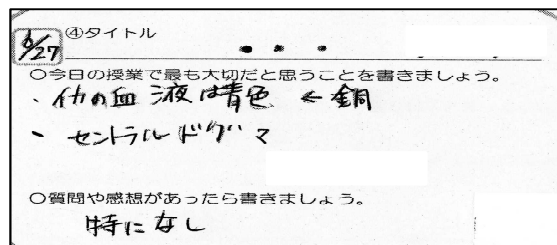 6/27 ④タイトル
○今日の授業で最も大切だと思うことを書きましょう。
・イカの血液は青色 ← 銅
・セントラルドグマ
○質問や感想があったら書きましょう。
特になし